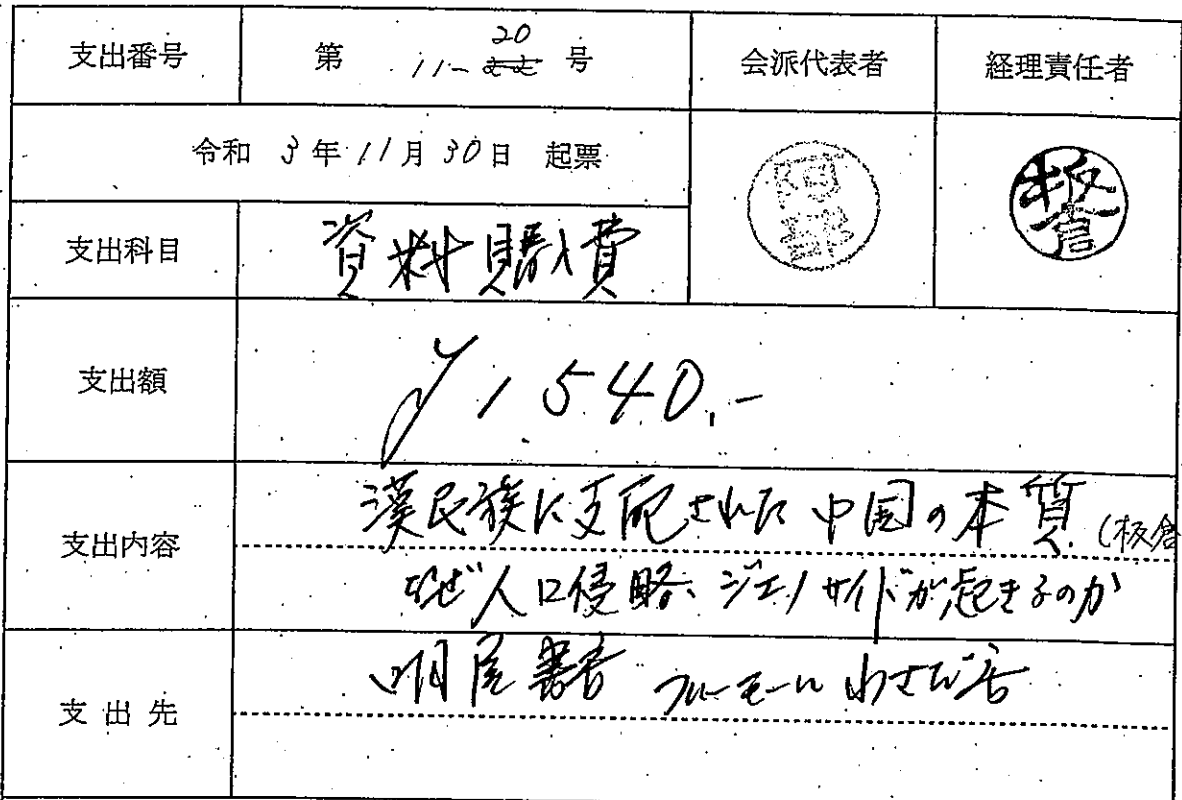 支出番号 第 11-20 号 会派代表者 経理責任者
令和 3年 11月 30日 起票
阿部
板倉
支出科目 資料購入費
支出額 ¥1,540.-
支出内容 漢民族に支配された中国の本質 (板倉
なぜ人口侵略、ジェノサイドが起きるのか
支出先 明屋書店 フレーモール わさだ店